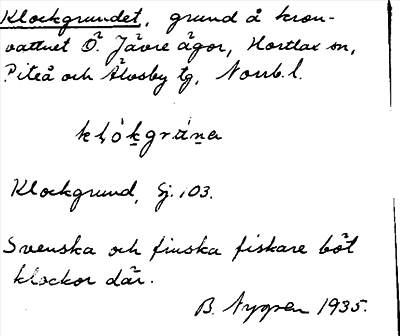 Klockgrundet, grund å kron-
vattnet Ö. Jävre ägor, Hortlax sn,
Piteå och Älvsby tg, Norrb. l.
klo̊kgrána
Klockgrund, Sj. 103.
Svenska och finska fiskare böt
klockor där.
B. Nygren 1935.